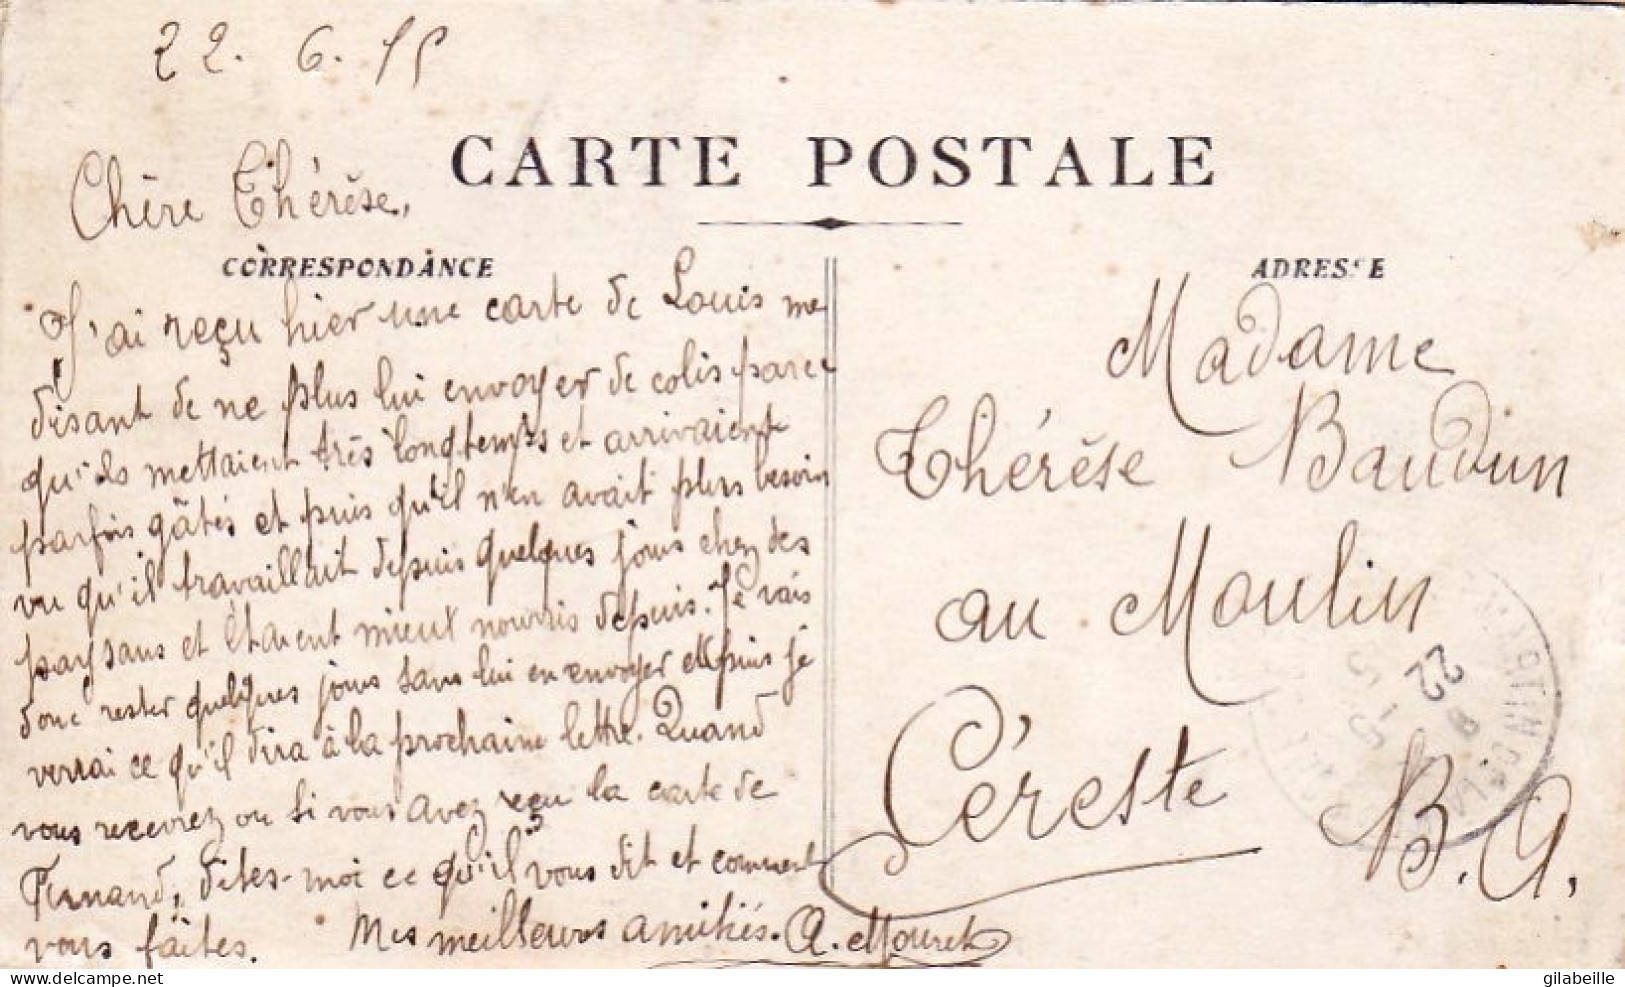 22. 6. 15
CARTE POSTALE
Chère Thérèse,
CORRESPONDANCE
J'ai reçu hier une carte de Louis me
disant de ne plus lui envoyer de colis parce
qu'ils mettaient très longtemps et arrivaient
parfois gâtés et puis qu'il n'en avait plus besoin
vu qu'il travaillait depuis quelques jours chez des
paysans et étaient mieux nourris depuis. Je vais
donc rester quelques jours sans lui en envoyer et puis je
verrai ce qu'il dira à la prochaine lettre. Quand
vous recevrez ou si vous avez reçu la carte de
Fernand, dites-moi ce qu'il vous dit et comment
vous faites. Mes meilleures amitiés. A. Mouret
ADRESSE
Madame
Thérèse Baudun
au Moulin
Céreste
B. A.
22
gilabeille